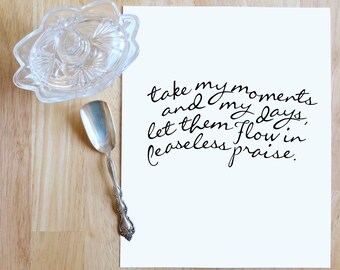 take my moments
and my days,
let them flow in
ceaseless praise.